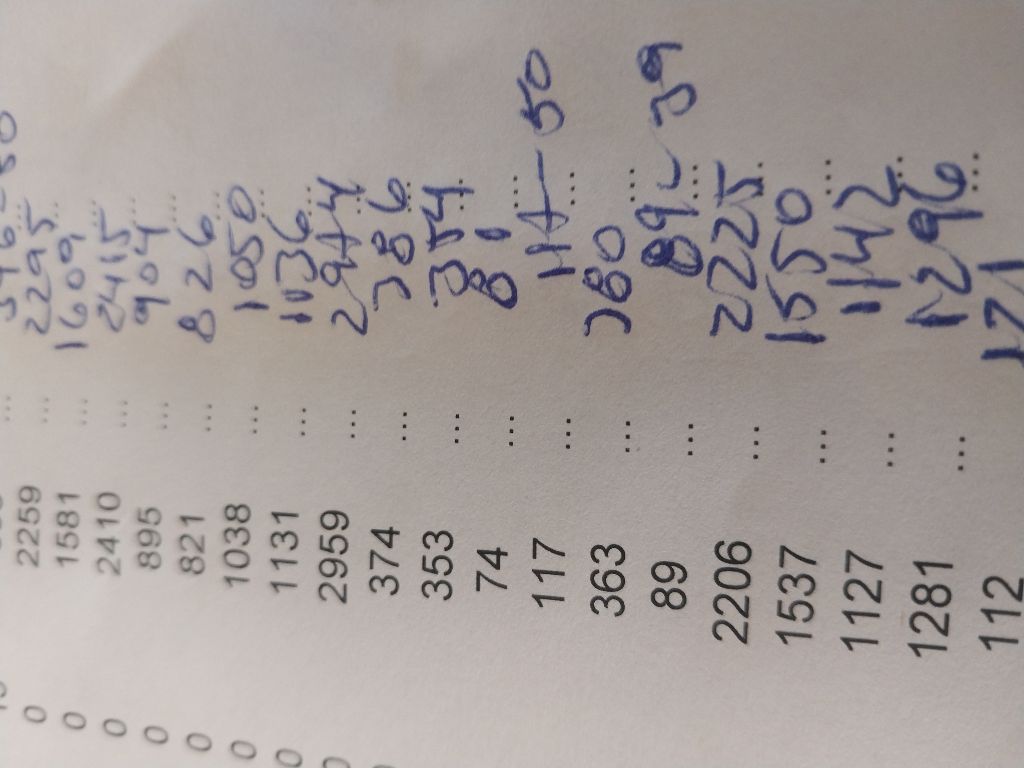 0 2259 ... 2295 ...
0 1581 ... 1609 ...
0 2410 ... 2415 ...
0 895 ... 904 ...
0 821 ... 826 ...
0 1038 ... 1050 ...
0 1131 ... 1036 ...
0 2959 ... 2974 ...
374 ... 386 ...
353 ... 354 ...
74 ... 81 ...
117 ... 117 - 50 ...
363 ... 380 ...
89 ... 89 - 39 ...
2206 ... 2225 ...
1537 ... 1550 ...
1127 ... 1142 ...
1281 ... 1296 ...
112